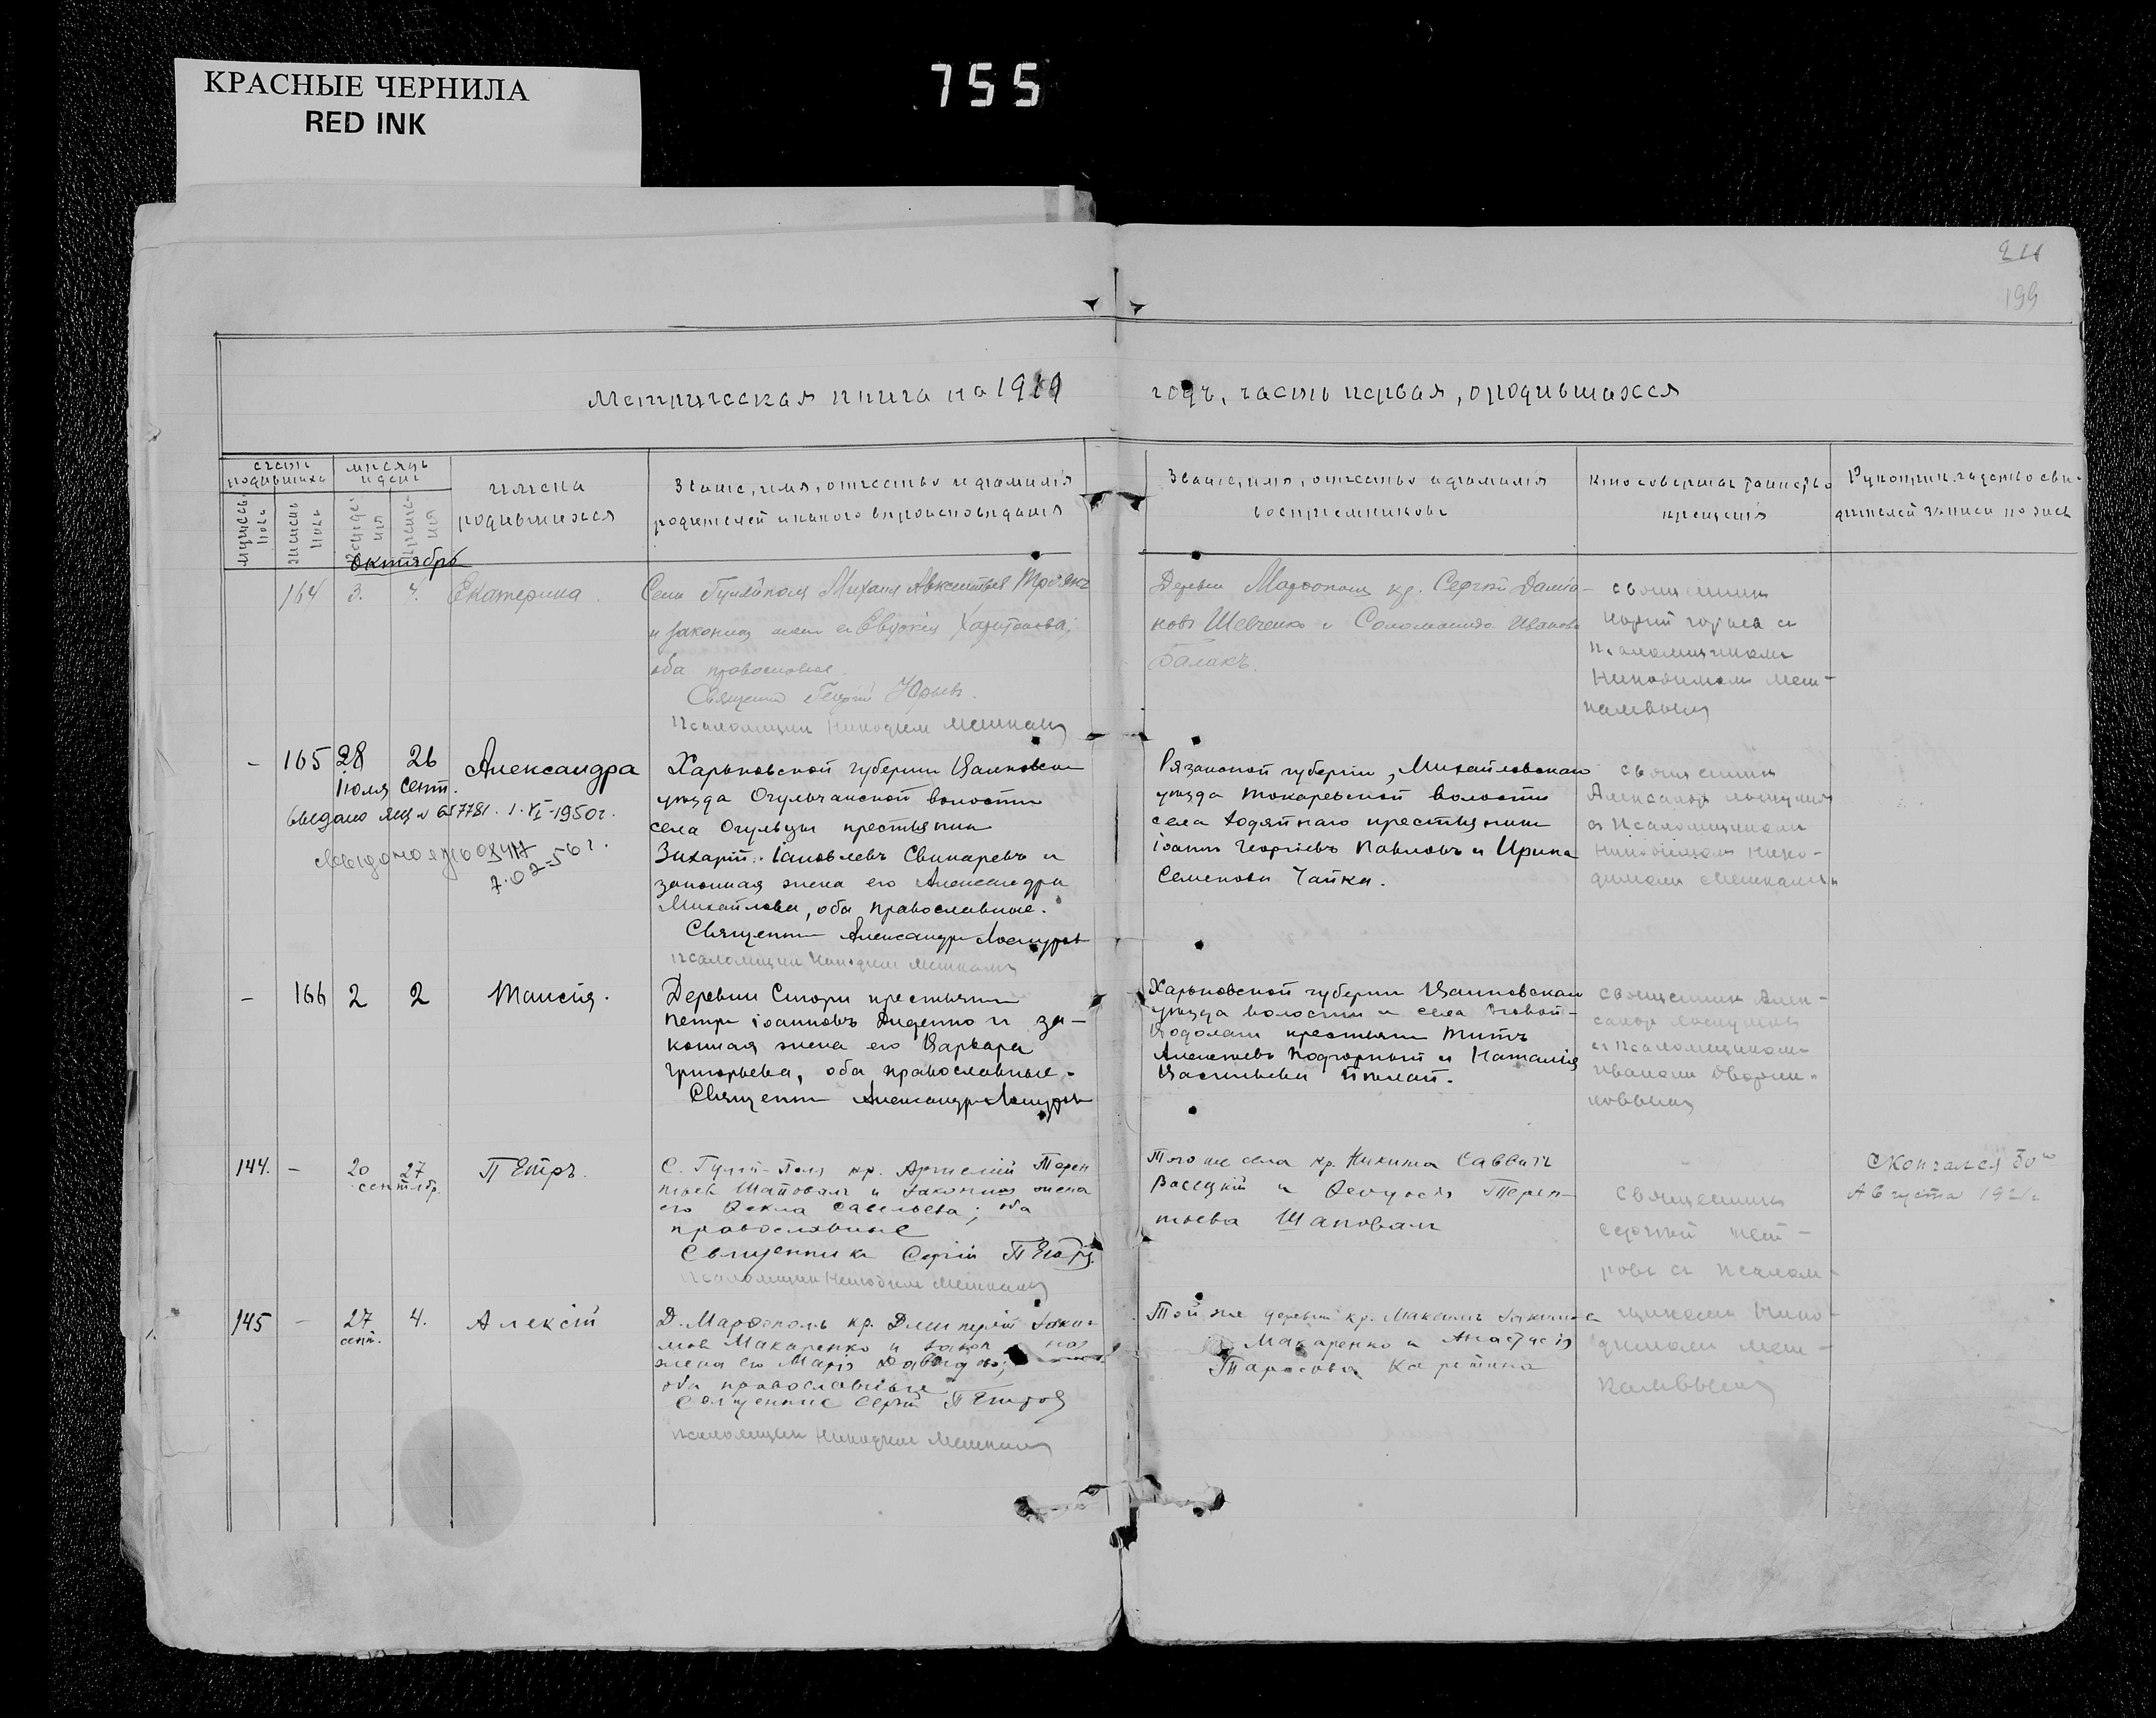 КРАСНЫЕ ЧЕРНИЛА
RED INK
755
211
199
Метрическая книга на 1919
годъ, часть первая, о родившихся
счетъ родившихся
мужеска пола
женска пола
месяцъ и день
рождения
крещения
имена
родившихся
Званiе, имя, отчество и фамилiя
родителей и какого вероисповеданiя
Званiе, имя, отчество и фамилiя
воспрiемниковъ
Кто совершалъ таинство
крещенiя
Рукоприкладство сви-
детелей записи по
Октябрь
164 3. 4. Екатерина.
Села Гуляйполя Михаилъ Авксентьев Троянъ
и законная жена его Евдокiя Харитонова;
оба православные.
Священникъ Георгiй Юрьевъ.
Псаломщикъ Никодим Мешкалъ
Деревни Марфополя кр. Сергей Дамiа-
новъ Шевченко и Соломонида Иванова
Балакъ.
священник
Псаломщикомъ
Никодимомъ Меш-
- 165 28 26 Александра
Iюля Сент.
выдано 657781. 1.VI-1950г.
7.02-56г.
Харьковской губернiи Валковскаго
уезда Огульчанской волости
села Огульцы крестьянинъ
Захарiй Iаковлевъ Свинаревъ и
законная жена его Александра
Михайлова, оба православные.
Священникъ Александръ
Псаломщикъ Никодим Мешкалъ
Рязанской губернiи, Михайловскаго
уезда Токаревской волости
села крестьянинъ
Iоаннъ Георгiевъ Павловъ и Ирина
Семенова Чайка.
священник
Александръ
съ Псаломщикомъ
- 166 2 2 Таисiя.
Деревни крестьянинъ
Петръ Iоанновъ Диденко и за-
конная жена его Варвара
Григорьева, оба православные.
Священникъ Александръ
Харьковской губернiи Валковскаго
уезда волости и села Новой-
Водолаги крестьянинъ Титъ
Алексеевъ Подгорный и Наталiя
Васильева
священник Алек-
сандр
съ Псаломщикомъ
Иваномъ Дворни-
ковымъ
144. - 20 27 Петръ.
сентябр.
С. Гуляй-Поля кр. Терен
тьев Шаповалъ и законная жена
его Фекла Савельева; оба
православные
Священникъ Сергiй Петровъ
Псаломщикъ Никодим Мешкалъ
Того же села кр. Никита Саввичъ
и Феодосiя Терен-
тьева Шаповалъ
Скончался 30го
Августа 192
Священник
Сергiй Пет-
ровъ съ Псалом-
щикомъ Нико-
димомъ Меш-
145 - 27 4. Алексiй
сент.
Д. Марфополь кр. Димитрiй
Макаренко и законная
жена его Марiя Давидова;
оба православные
Священник Сергiй Петровъ
Псаломщикъ Никодим Мешкалъ
Той же деревни кр. Максимъ
Макаренко и Анастасiя
Тарасова